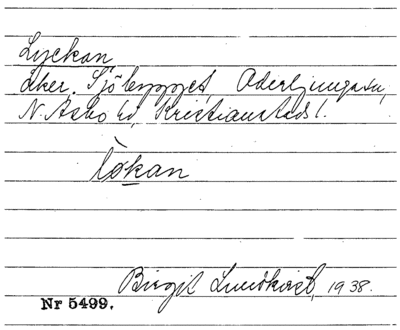 Lyckan
åker. Sjöbygget, Oderljunga sn,
N. Åsbo hd, Kristianstads l.
lo̊kan
Birgit Lundkvist, 1938.
Nr 5499.